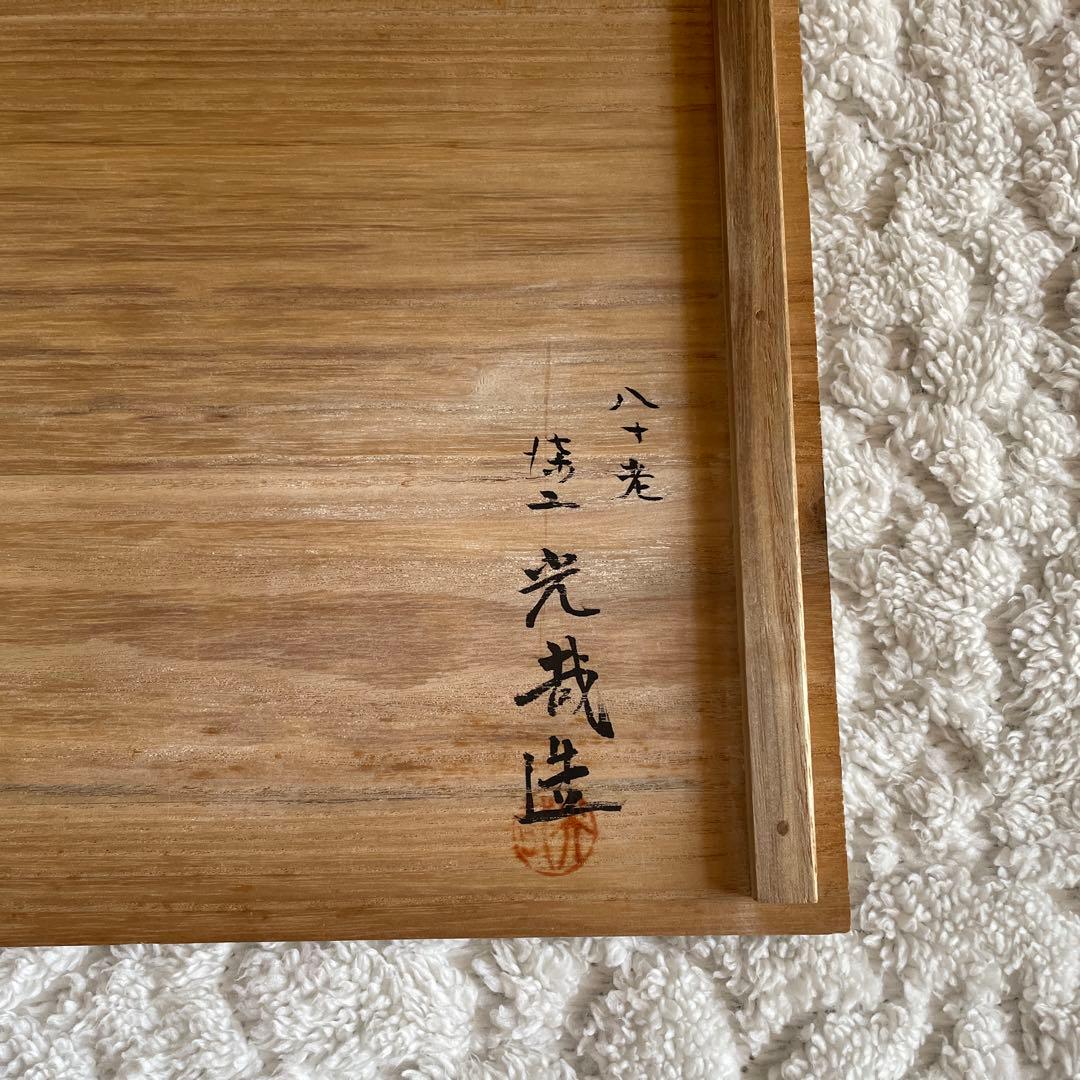 八十老
漆工 光哉造